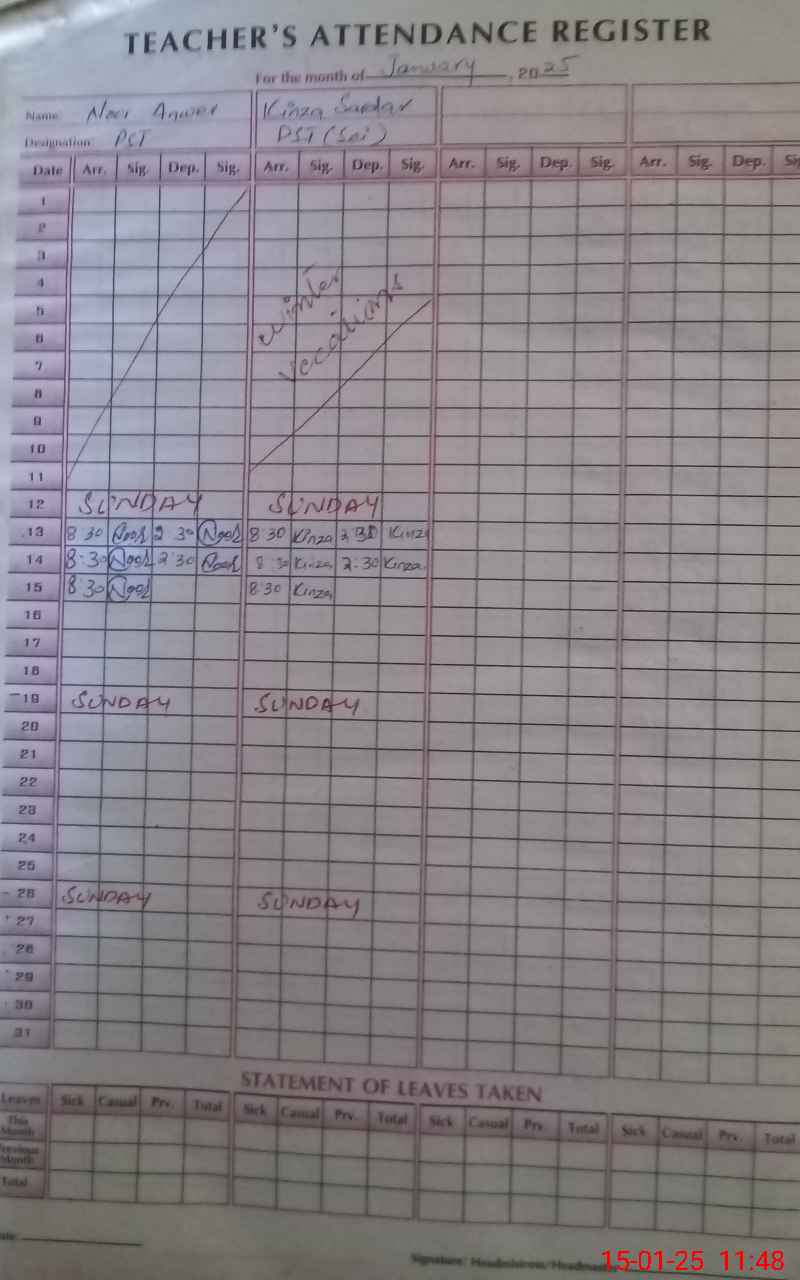 TEACHER'S ATTENDANCE REGISTER
For the month of January, 2025
Name: Noor Anwer Kinza Sardar
Designation: PST PST (Sci)
Date Arr. Sig. Dep. Sig. Arr. Sig. Dep. Sig. Arr. Sig. Dep. Sig. Arr. Sig. Dep. Sig
1
2
3
4
winter
5
6
vecations
7
8
9
10
11
12 SUNDAY SUNDAY
13 8 30 Noor 2 30 Noor 8:30 Kinza 2:30 Kinza
14 8:30 Noor 2:30 Noor 8:30 Kinza 2:30 Kinza
15 8:30 Noor 8:30 Kinza
16
17
18
19 SUNDAY SUNDAY
20
21
22
23
24
25
26 SUNDAY SUNDAY
27
28
29
30
31
STATEMENT OF LEAVES TAKEN
Leaves Sick Casual Prv. Total Sick Casual Prv. Total Sick Casual Prv. Total Sick Casual Prv. Total
This Month
Previous Month
Total
Signature: Headmistress/Headmaster
15-01-25 11:48